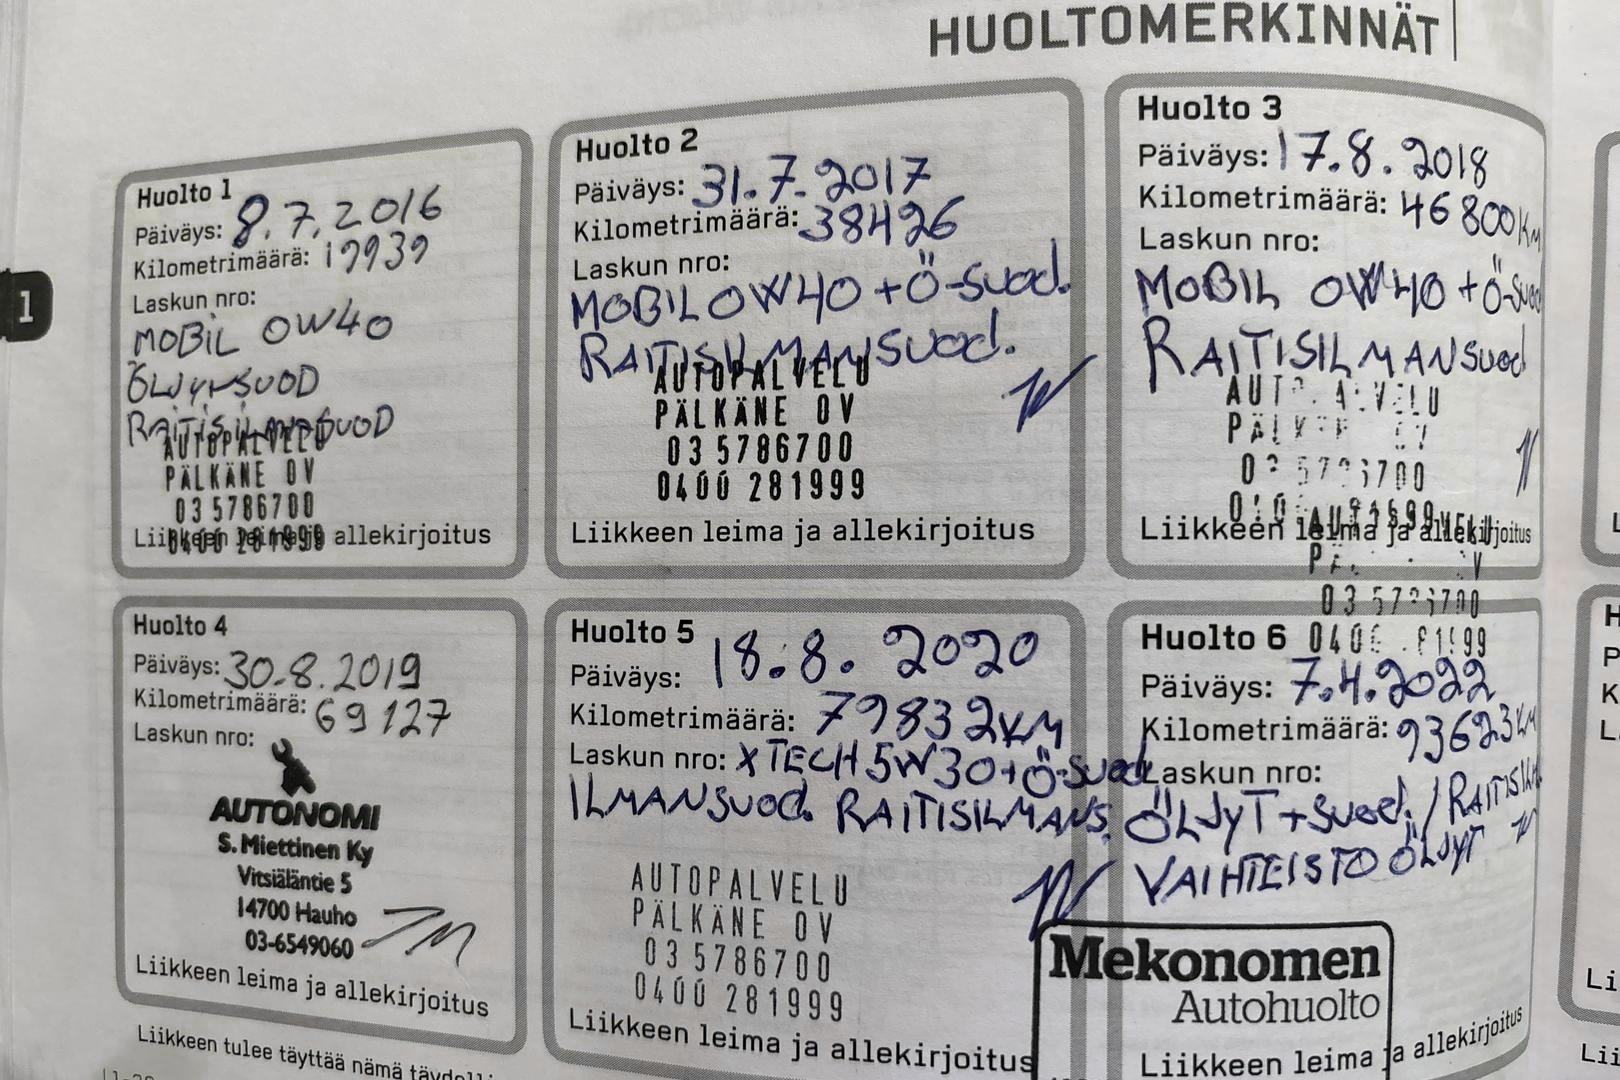 HUOLTOMERKINNÄT
1
Huolto 1
Päiväys: 8.7.2016
Kilometrimäärä: 19939
Laskun nro:
MOBIL 0W40
ÖLJYNSUOD
RAITISILMANSUOD
AUTOPALVELU
PÄLKÄNE OV
03 5786700
0400 281999
Liikkeen leima ja allekirjoitus
Huolto 2
Päiväys: 31.7.2017
Kilometrimäärä: 38426
Laskun nro:
MOBIL 0W40 + Ö-suod.
RAITISILMANSUOD.
AUTOPALVELU
PÄLKÄNE OV
03 5786700
0400 281999
Liikkeen leima ja allekirjoitus
Huolto 3
Päiväys: 17.8.2018
Kilometrimäärä: 46800Km
Laskun nro:
MOBIL 0W40 + Ö-suod
RAITISILMANSUOD
AUTOPALVELU
PÄLKÄNE OV
03 5786700
Liikkeen leima ja allekirjoitus
03 5786700
Huolto 4
Päiväys: 30.8.2019
Kilometrimäärä: 69127
Laskun nro:
AUTONOMI
S. Miettinen Ky
Vitsiäläntie 5
14700 Hauho
03-6549060
Liikkeen leima ja allekirjoitus
Huolto 5
Päiväys: 18.8.2020
Kilometrimäärä: 79832KM
Laskun nro: XTECH 5W30+Ö-suod
ILMANSUOD. RAITISILMANS.
AUTOPALVELU
PÄLKÄNE OV
03 5786700
0400 281999
Liikkeen leima ja allekirjoitus
Huolto 6
Päiväys: 7.4.2022
Kilometrimäärä: 93623KM
Laskun nro:
ÖLJYT + suod. / RAITISILM
VAIHTEISTO ÖLJYT
Mekonomen
Autohuolto
Liikkeen leima ja allekirjoitus
Liikkeen tulee täyttää nämä